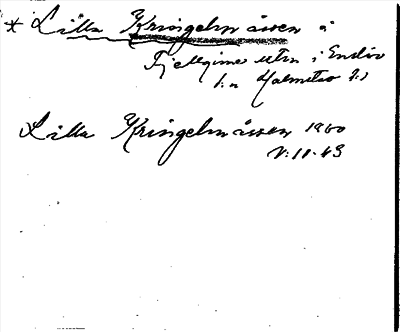 * Lilla Kringelmåssen å
Fjellgime utm i Endöv
s:n Halmstad h:d
Lilla Kringelmåssen 1960
V:11.43